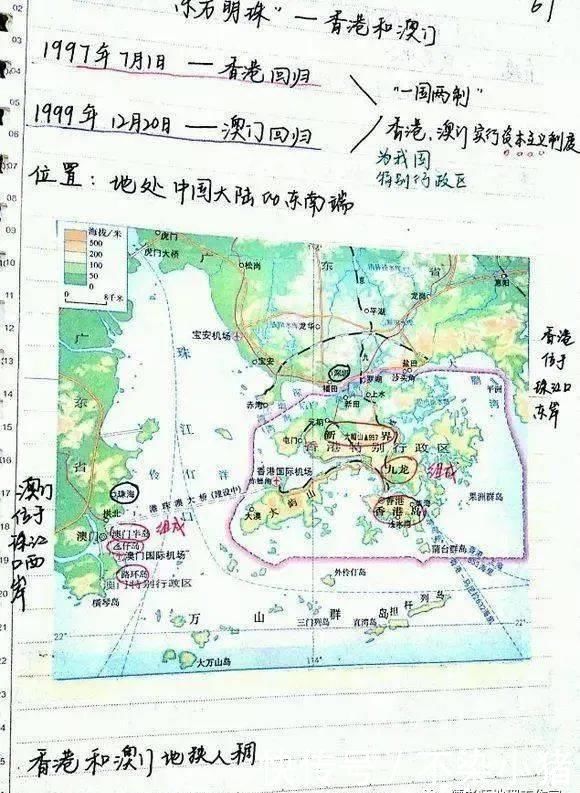 东方明珠”—香港和澳门
61
1997年7月1日 — 香港回归
“一国两制”
1999年 12月20日 — 澳门回归
香港、澳门实行资本主义制度
为我国
特别行政区
位置：地处中国大陆的东南端
海拔/米
500
200
100
50
0
0 8千米
虎门
虎门大桥
松岗
东
省
惠阳
龙岗
平湖
龙华
宝安机场
宝安
珠
江
口
伶
仃
洋
广
东
省
深圳
福田
罗湖
盐田
沙头角
上水
新田
赤湾
元朗
屯门
新
界
大帽山▲957
香港特别行政区
九龙
组成
香港国际机场
港珠澳大桥（建设中）
大澳
大屿山
香港
香港岛
果洲群岛
蒲台群岛
平洲
珠海
拱北
澳门
澳门半岛
氹仔岛
组成
澳门国际机场
路环岛
澳门特别行政区
横琴岛
外伶仃岛
万山群岛
三门列岛
直湾岛
担杆列岛
大万山岛
22°
22°
114°
香港
位于
珠江口
东岸
澳门
位于
珠江
口西
岸
香港和澳门地狭人稠